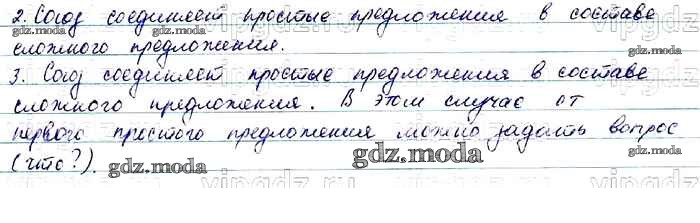 2. Союз соединяет простые предложения в составе
сложного предложения.
3. Союз соединяет простые предложения в составе
сложного предложения. В этом случае от
первого простого предложения можно задать вопрос
(что?).
gdz.moda
gdz.moda
gdz.moda
gdz.moda
gdz.moda
gdz.moda
gdz.moda
vipgdz.ru